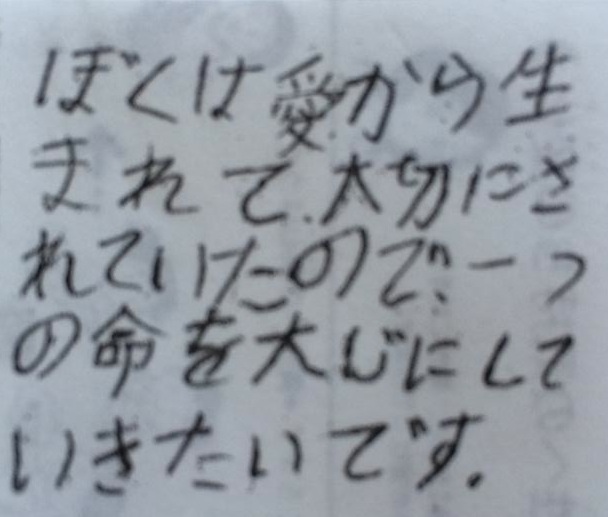 ぼくは愛から生
まれて、大切にさ
れていたので、一つ
の命を大じにして
いきたいです。